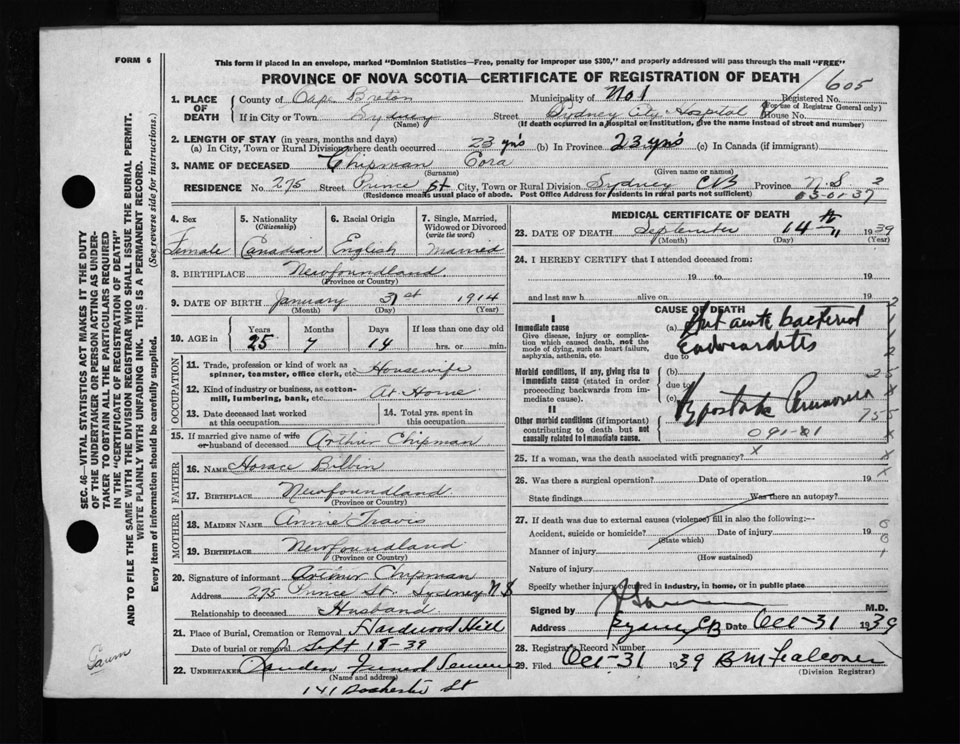 FORM 6
This form if placed in an envelope, marked "Dominion Statistics—Free, penalty for improper use $300," and properly addressed will pass through the mail "FREE"
PROVINCE OF NOVA SCOTIA—CERTIFICATE OF REGISTRATION OF DEATH
605
1. PLACE OF DEATH
County of Cape Breton Municipality of No 1 Registered No.
(For use of Registrar General only)
If in City or Town Sydney Street Sydney City Hospital House No.
(Name) (If death occurred in a hospital or institution, give the name instead of street and number)
2. LENGTH OF STAY (in years, months and days)
(a) In City, Town or Rural Division where death occurred 23 yrs (b) In Province 23 yrs (c) In Canada (if immigrant)
3. NAME OF DECEASED Chipman Cora
(Surname) (Given name or names)
RESIDENCE No. 275 Street Prince St. City, Town or Rural Division Sydney CB Province N S 2
(Residence means usual place of abode. Post Office Address for residents in rural parts not sufficient) 03-01-37
4. Sex Female
5. Nationality (Citizenship) Canadian
6. Racial Origin English
7. Single, Married, Widowed or Divorced (write the word) Married
8. BIRTHPLACE Newfoundland
(Province or Country)
9. DATE OF BIRTH January 31st 1914
(Month) (Day) (Year)
10. AGE in Years 25 Months 7 Days 14 If less than one day old hrs. or min.
OCCUPATION
11. Trade, profession or kind of work as spinner, teamster, office clerk, etc. Housewife
12. Kind of industry or business, as cotton-mill, lumbering, bank, etc. At Home
13. Date deceased last worked at this occupation
14. Total yrs. spent in this occupation
15. If married give name of wife or husband of deceased Arthur Chipman
FATHER
16. NAME Horace Bilbin
17. BIRTHPLACE Newfoundland
(Province or Country)
MOTHER
18. MAIDEN NAME Annie Travis
19. BIRTHPLACE Newfoundland
(Province or Country)
20. Signature of informant Arthur Chipman
Address 275 Prince St. Sydney N S
Relationship to deceased Husband
21. Place of Burial, Cremation or Removal Hardwood Hill
Date of burial or removal Sept 18-39
22. UNDERTAKER Funeral
(Name and address)
141 Dorchester St
MEDICAL CERTIFICATE OF DEATH
23. DATE OF DEATH September 14th 1939
(Month) (Day) (Year)
24. I HEREBY CERTIFY that I attended deceased from:
19 to 19
and last saw h alive on 19
CAUSE OF DEATH
I
Immediate cause
Give disease, injury or complication which caused death, not the mode of dying, such as heart failure, asphyxia, asthenia, etc.
(a) Sub acute bacterial
endocarditis
due to
Morbid conditions, if any, giving rise to immediate cause (stated in order proceeding backwards from immediate cause).
(b)
due to
(c)
II
Other morbid conditions (if important) contributing to death but not causally related to immediate cause.
091-01
25. If a woman, was the death associated with pregnancy? x
26. Was there a surgical operation? Date of operation 19
State findings Was there an autopsy?
27. If death was due to external causes (violence) fill in also the following:—
Accident, suicide or homicide? Date of injury 19
(State which)
Manner of injury
(How sustained)
Nature of injury
Specify whether injury occurred in industry, in home, or in public place
Signed by M.D.
Address Sydney CB Date Oct-31 1939
28. Registrar's Record Number
29. Filed Oct-31 1939 B M Falconer
(Division Registrar)
SEC. 46—VITAL STATISTICS ACT MAKES IT THE DUTY
OF THE UNDERTAKER OR PERSON ACTING AS UNDER-
TAKER TO OBTAIN ALL THE PARTICULARS REQUIRED
IN THE "CERTIFICATE OF REGISTRATION OF DEATH"
AND TO FILE THE SAME WITH THE DIVISION REGISTRAR WHO SHALL ISSUE THE BURIAL PERMIT.
WRITE PLAINLY WITH UNFADING INK. THIS IS A PERMANENT RECORD.
Every item of information should be carefully supplied. (See reverse side for instructions.)